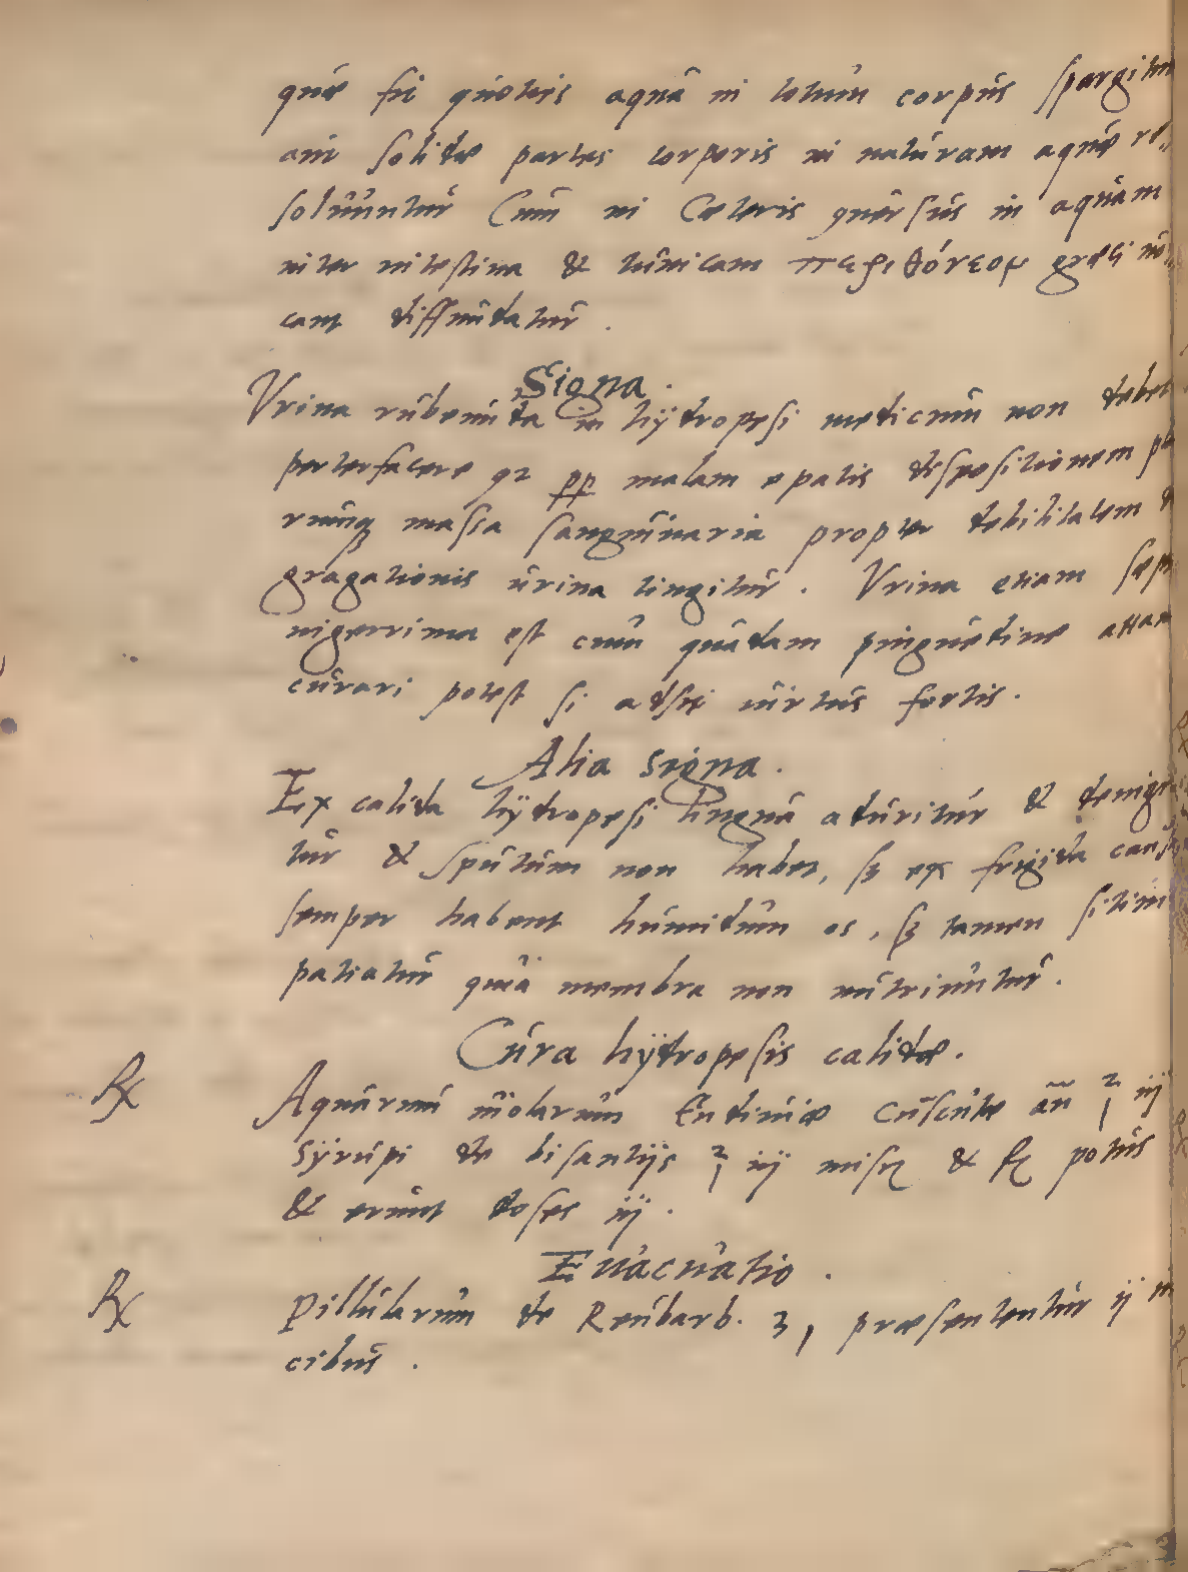 quæ fit quoties aqua in totum corpus spargitur
aut solidæ partes corporis in naturam aquæ re„
soluuntur Cum in Cæteris quæ sus in aquam
inter intestina & tunicam περιθόνεον græci uo„
cant diffundatur .
Signa .
Vrina rubicunda in hÿdropesi medicum non debet
perterfacere qz pp malam epatis dispositionem ple
rumqꝫ massa sanguinaria propter debilitatem
gregationis urina tingitur . Vrina etiam sæpe
nigerrima est cum quadam pinguedine attam
curari potest si adsit uirtus fortis .
Alia signa .
Ex calida hÿdropesi lingua aduritur & denigra
tur & sputum non habet, sꝫ ex frigida causa
semper habent humidum os , sꝫ tamen sitim
patiatur quia membra non nutriuntur .
Cura hÿdropesis calidæ .
℞ Aquarum uiolarum Endiuiæ Cuscutæ añ ℥ iij
sÿrupi de bisantijs ℥ iij misꝫ & fꝫ potus
& erunt doses iij .
Euacuatio .
℞ Pillularum de Reubarb. ʒ j præsententur ij in
cibus .